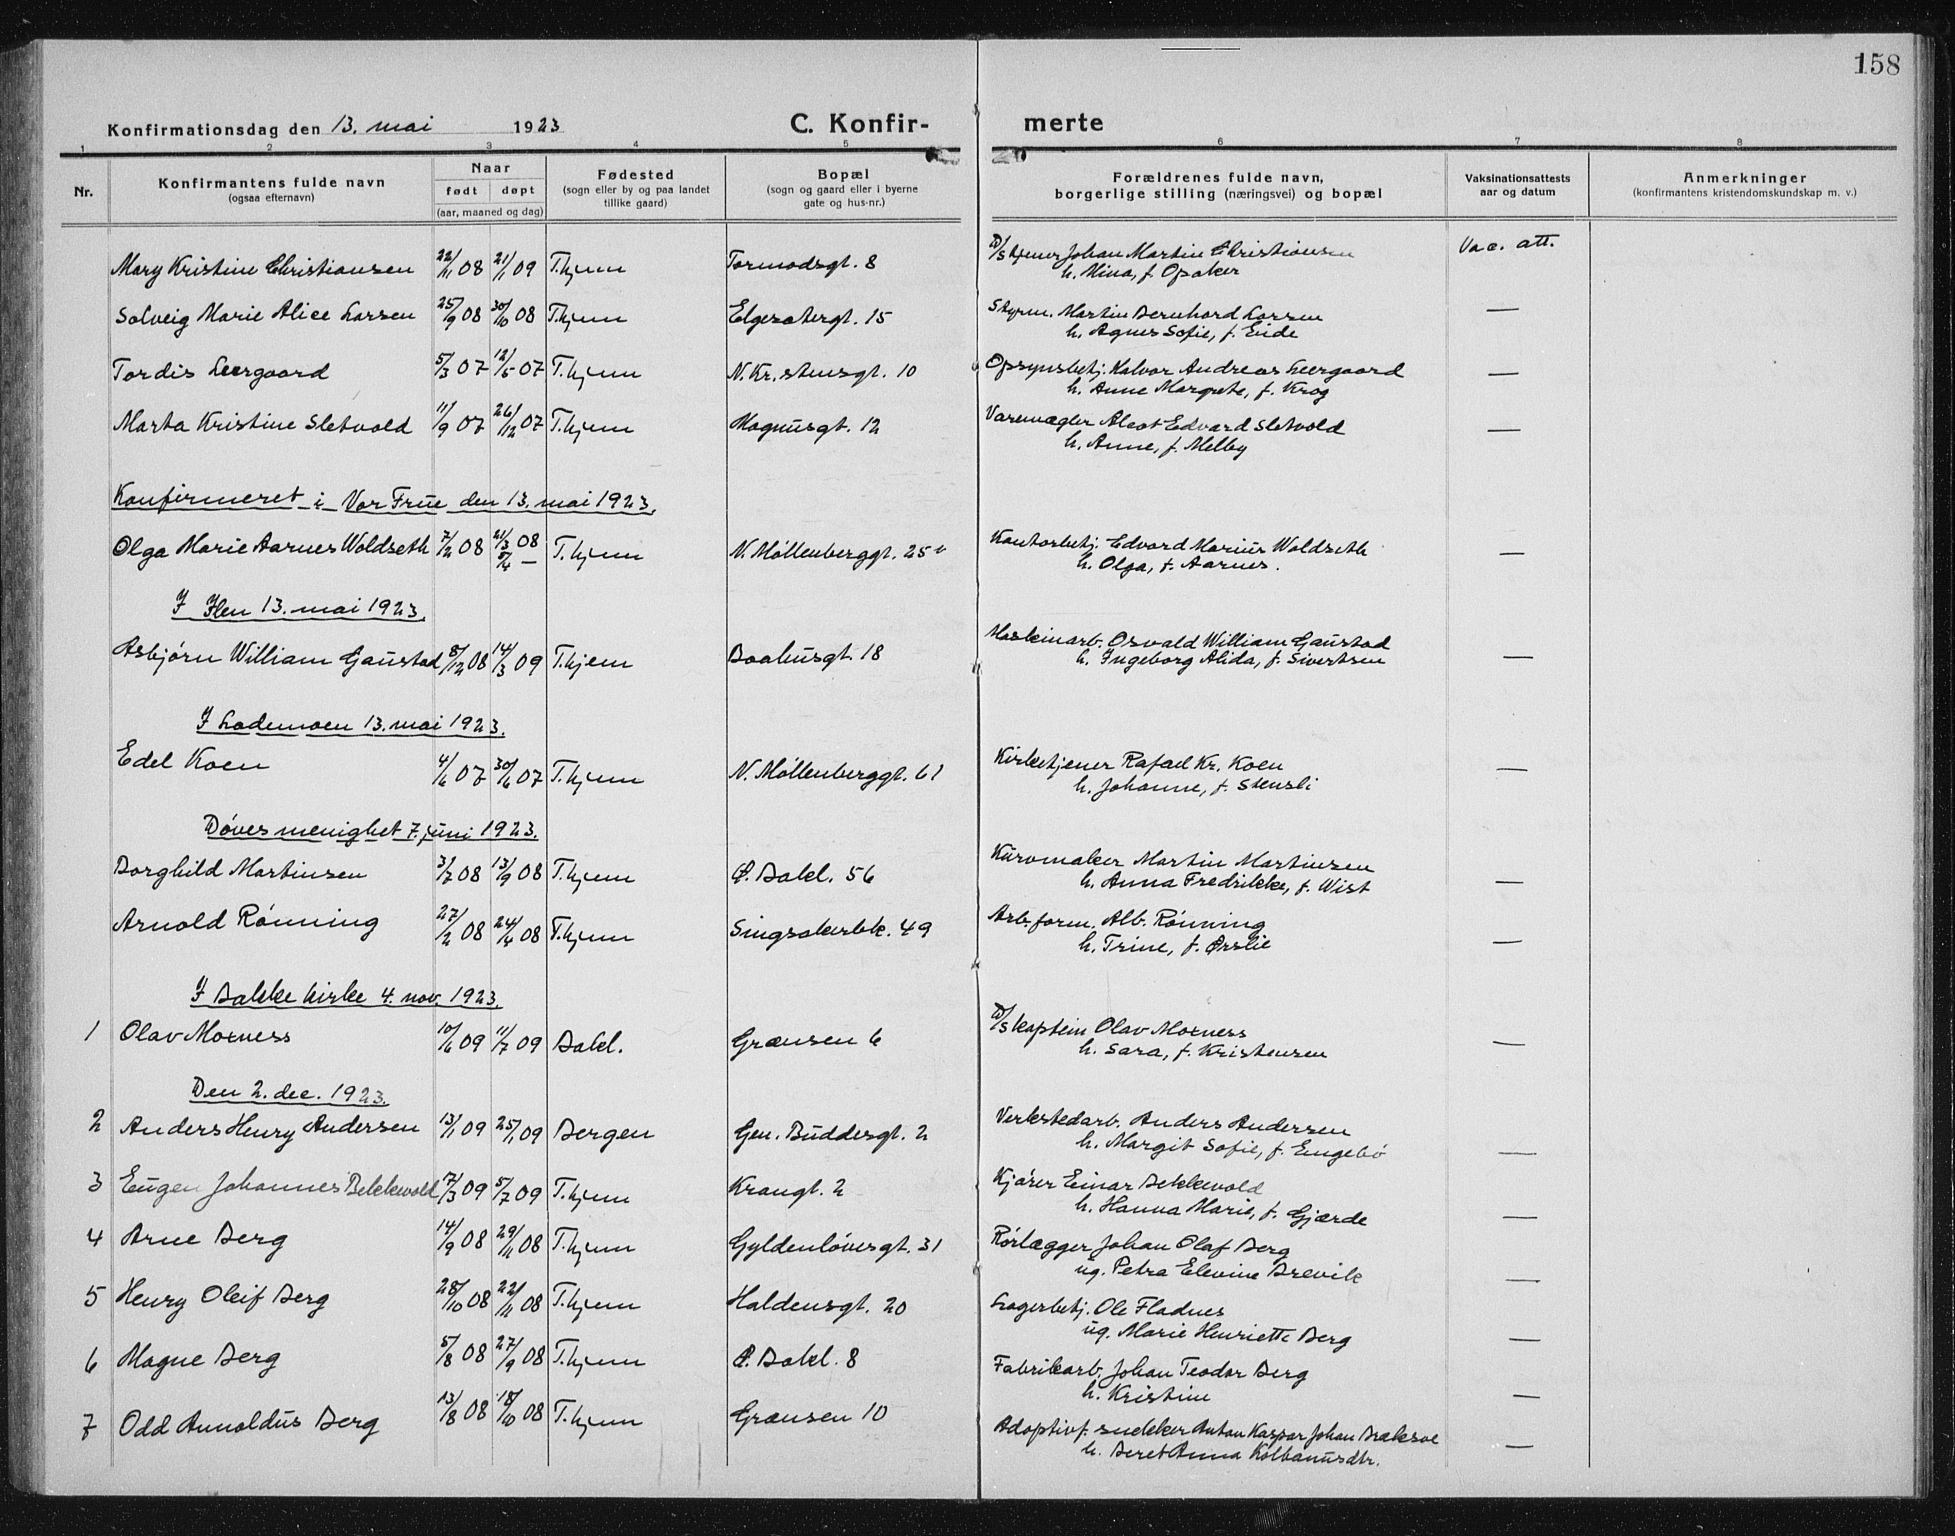 158
Konfirmationsdag den 13. mai 1923 C. Konfir- merte
1 2 3 4 5 6 7 8
Nr. Konfirmantens fulde navn (ogsaa efternavn) Naar født døpt (aar, maaned og dag) Fødested (sogn eller by og paa landet tillike gaard) Bopæl (sogn og gaard eller i byerne gate og hus-nr.) Forældrenes fulde navn, borgerlige stilling (næringsvei) og bopæl Vaksinationsattests aar og datum Anmerkninger (konfirmantens kristendomskundskap m. v.)
Mary Kristine Christiansen 22/11 08 21/1 09 T.hjem Tormodsgt. 8 D/Skjener Johan Martin Christiansen Vac. att.
h. Mina, f. Opaker
Solveig Marie Alice Larsen 25/9 08 30/10 08 T.hjem Elgesetergt. 15 Styrm. Martin Bernhard Larsen —
h. Agnes Sofie, f. Eide
Tordis Leergaard 5/3 07 12/5 07 T.hjem N. Kr.stensgt. 10 Opsynsbetj. Halvor Andreas Leergaard —
h. Anne Margrete, f. Krog
Marta Kristine Sletvold 11/9 07 26/12 07 T.hjem Magnusgt. 12 Varemægler Edvard Sletvold —
h. Anne, f. Melby
Konfirmeret i Vor Frue den 13. mai 1923.
Olga Marie Aarnes Woldseth 7/2 08 21/3 08 5/4 — T.hjem N. Møllenberggt. 25 Kontorbetj. Edvard Marius Woldseth —
h. Olga, f. Aarnes.
I Ilen 13. mai 1923.
Asbjørn William Gaustad 8/12 08 14/3 09 T.hjem Baahusgt. 18 Maskinarb. Osvald William Gaustad —
h. Ingeborg Alida, f. Sivertsen
I Lademoen 13. mai 1923.
Edel Koen 4/6 07 30/6 07 T.hjem N. Møllenberggt. 61 Kirketjener Rafael Kr. Koen —
h. Johanne, f. Stensli
Døves menighet 7. juni 1923.
Borghild Martinsen 3/7 08 13/9 08 T.hjem Ø. Bakl. 56 Kurvmaker Martin Martinsen —
h. Anna Fredrikke, f. Wist
Arnold Rønning 27/2 08 24/4 08 T.hjem Singsakerbk. 49 Arb.form. Alb. Rønning —
h. Trine, f. Ørslie
I Bakke kirke 4. nov. 1923.
1 Olav Moxness 10/6 09 11/7 09 Bakl. Grænsen 6 D/Skaptein Olav Moxness —
h. Sara, f. Kristensen
Den 2. dec. 1923.
2 Anders Henry Andersen 13/1 09 25/1 09 Bergen Gen. Buddesgt. 2 Verkstedarb. Anders Andersen —
h. Margit Sofie, f. Engebø
3 Eugen Johannes Bekkevold 7/3 09 5/7 09 T.hjem Krangt. 2 Kjører Einar Bekkevold —
h. Hanna Marie, f. Gjærde
4 Arne Berg 14/9 08 29/11 08 T.hjem Gyldenløvesgt. 31 Rørlægger Johan Olaf Berg —
ug. Petra Elevine Brevik
5 Henry Oleif Berg 28/10 08 22/11 08 T.hjem Haldensgt. 20 Lagerbetj. Ole Fladnes —
ug. Marie Henriette Berg
6 Magne Berg 5/8 08 27/9 08 T.hjem Ø. Bakl. 8 Fabrikarb. Johan Teodor Berg —
h. Kristine
7 Odd Arnoldus Berg 13/8 08 18/10 08 T.hjem Grænsen 10 Adoptivf. snekker Anton Kaspar Johan Brækseе —
h. Beret Anna Kolbanusdtr.